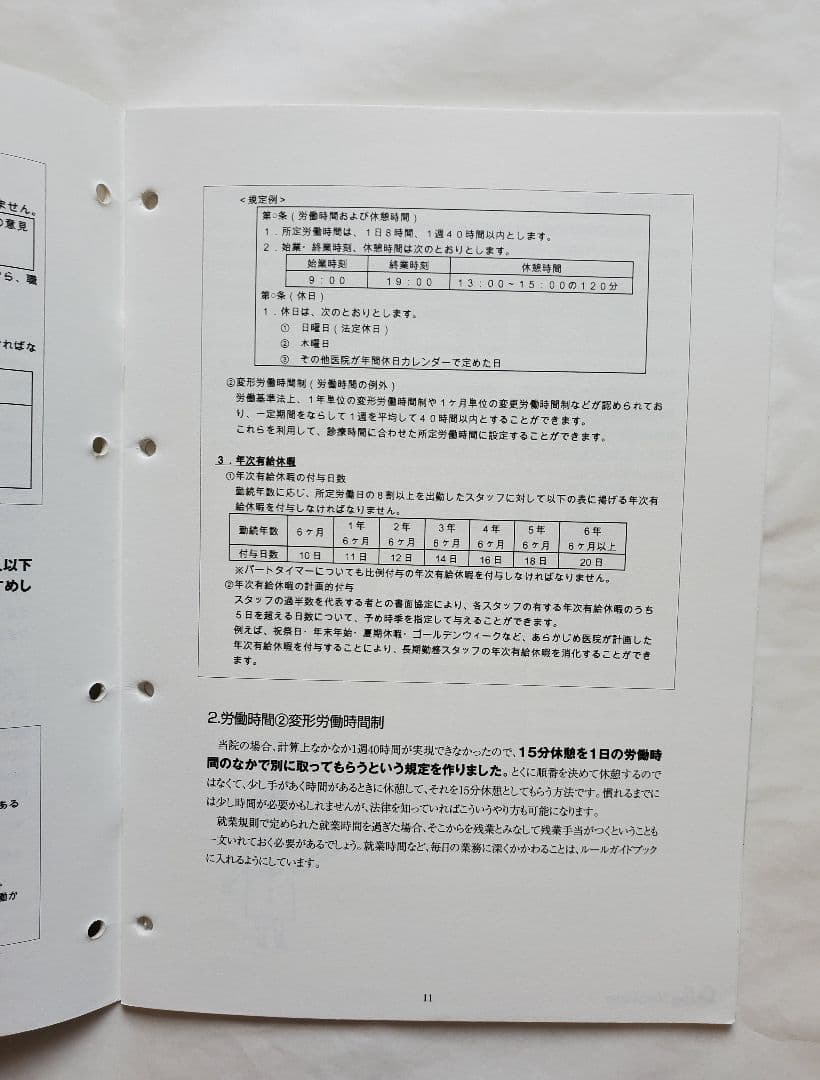 ません。
の意見
ら、職
ければな
以下
すめし
ある
働か
<規定例>
第○条(労働時間および休憩時間)
1.所定労働時間は、1日8時間、1週40時間以内とします。
2.始業・終業時刻、休憩時間は次のとおりとします。
始業時刻 終業時刻 休憩時間
9:00 19:00 13:00~15:00の120分
第○条(休日)
1.休日は、次のとおりとします。
① 日曜日(法定休日)
② 木曜日
③ その他医院が年間休日カレンダーで定めた日
②変形労働時間制(労働時間の例外)
労働基準法上、1年単位の変形労働時間制や1ヶ月単位の変更労働時間制などが認められてお
り、一定期間をならして1週を平均して40時間以内とすることができます。
これらを利用して、診療時間に合わせた所定労働時間に設定することができます。
3.年次有給休暇
①年次有給休暇の付与日数
勤続年数に応じ、所定労働日の8割以上を出勤したスタッフに対して以下の表に掲げる年次有
給休暇を付与しなければなりません。
勤続年数 6ヶ月 1年6ヶ月 2年6ヶ月 3年6ヶ月 4年6ヶ月 5年6ヶ月 6年6ヶ月以上
付与日数 10日 11日 12日 14日 16日 18日 20日
※パートタイマーについても比例付与の年次有給休暇を付与しなければなりません。
②年次有給休暇の計画的付与
スタッフの過半数を代表する者との書面協定により、各スタッフの有する年次有給休暇のうち
5日を超える日数について、予め時季を指定して与えることができます。
例えば、祝祭日・年末年始・夏期休暇・ゴールデンウィークなど、あらかじめ医院が計画した
年次有給休暇を付与することにより、長期勤務スタッフの年次有給休暇を消化することができ
ます。
2.労働時間②変形労働時間制
当院の場合、計算上なかなか1週40時間が実現できなかったので、15分休憩を1日の労働時
間のなかで別に取ってもらうという規定を作りました。とくに順番を決めて休憩するので
はなくて、少し手があく時間があるときに休憩して、それを15分休憩としてもらう方法です。慣れるまでに
は少し時間が必要かもしれませんが、法律を知っていればこういうやり方も可能になります。
就業規則で定められた就業時間を過ぎた場合、そこからを残業とみなして残業手当がつくということも
一文いれておく必要があるでしょう。就業時間など、毎日の業務に深くかかわることは、ルールガイドブック
に入れるようにしています。
11